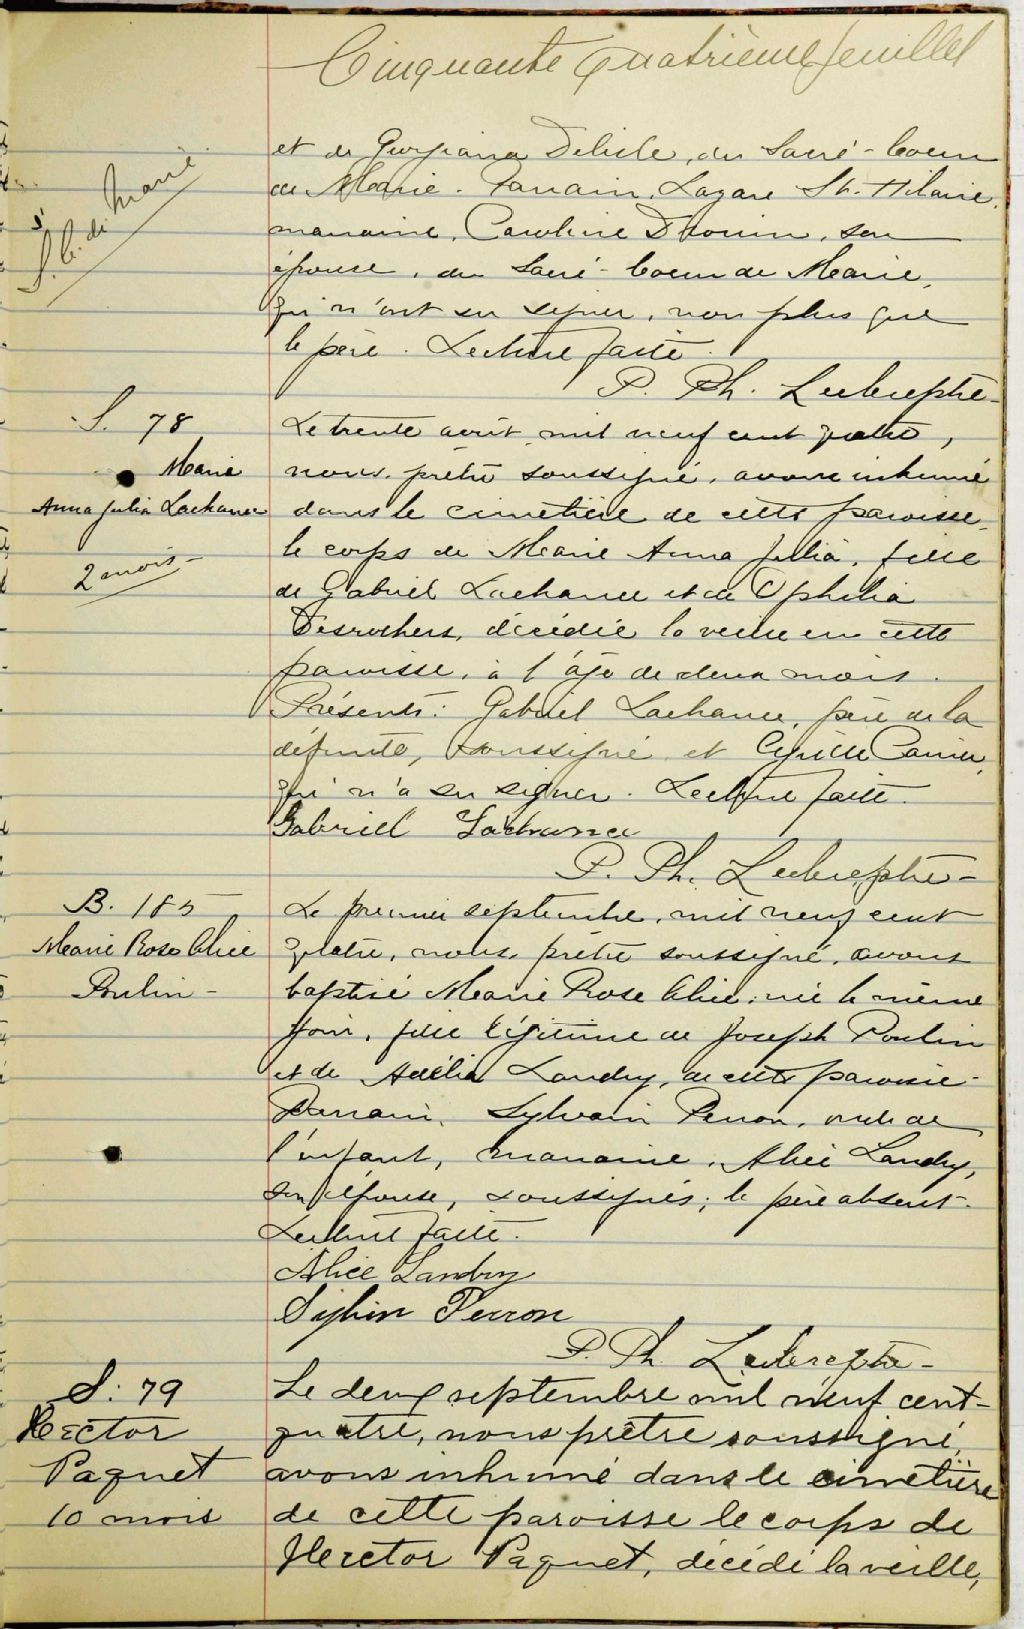 Cinquante quatrième feuillet
et de Georgiana Delisle, du Sacré-Coeur
de Marie. Parrain, Lazare St. Hilaire,
marraine, Caroline Drouin, son
épouse, du Sacré-Coeur de Marie,
qui n'ont su signer, non plus que
le père. Lecture faite.
P. Ph. Leclerc ptre
S. C. de Marie
S. 78
Marie
Anna Julia Lachance
2 mois
Le trente août mil neuf cent quatre,
nous, prêtre soussigné, avons inhumé
dans le cimetière de cette paroisse,
le corps de Marie Anna Julia, fille
de Gabriel Lachance et de Ophélia
Desrochers, décédée la veille en cette
paroisse, à l'âge de deux mois.
Présents: Gabriel Lachance, père de la
défunte, soussigné et Cyrille
qui n'a su signer. Lecture faite.
Gabriel Lachance
P. Ph. Leclerc, ptre-
B. 185
Marie Rose Alice
Poulin -
Le premier septembre, mil neuf cent
quatre, nous, prêtre soussigné, avons
baptisé Marie Rose Alice, née le même
jour, fille légitime de Joseph Poulin
et de Adélia Landry, de cette paroisse.
Parrain, Sylvain Perron, oncle de
l'enfant, marraine, Alice Landry,
son épouse, soussignés; le père absent.
Lecture faite.
Alice Landry
Sylvin Perron
P. Ph. Leclerc ptre-
S: 79
Hector
Paquet
10 mois
Le deux septembre mil neuf cent-
quatre, nous prêtre soussigné,
avons inhumé dans le cimetière
de cette paroisse le corps de
Hector Paquet, décédé la veille,